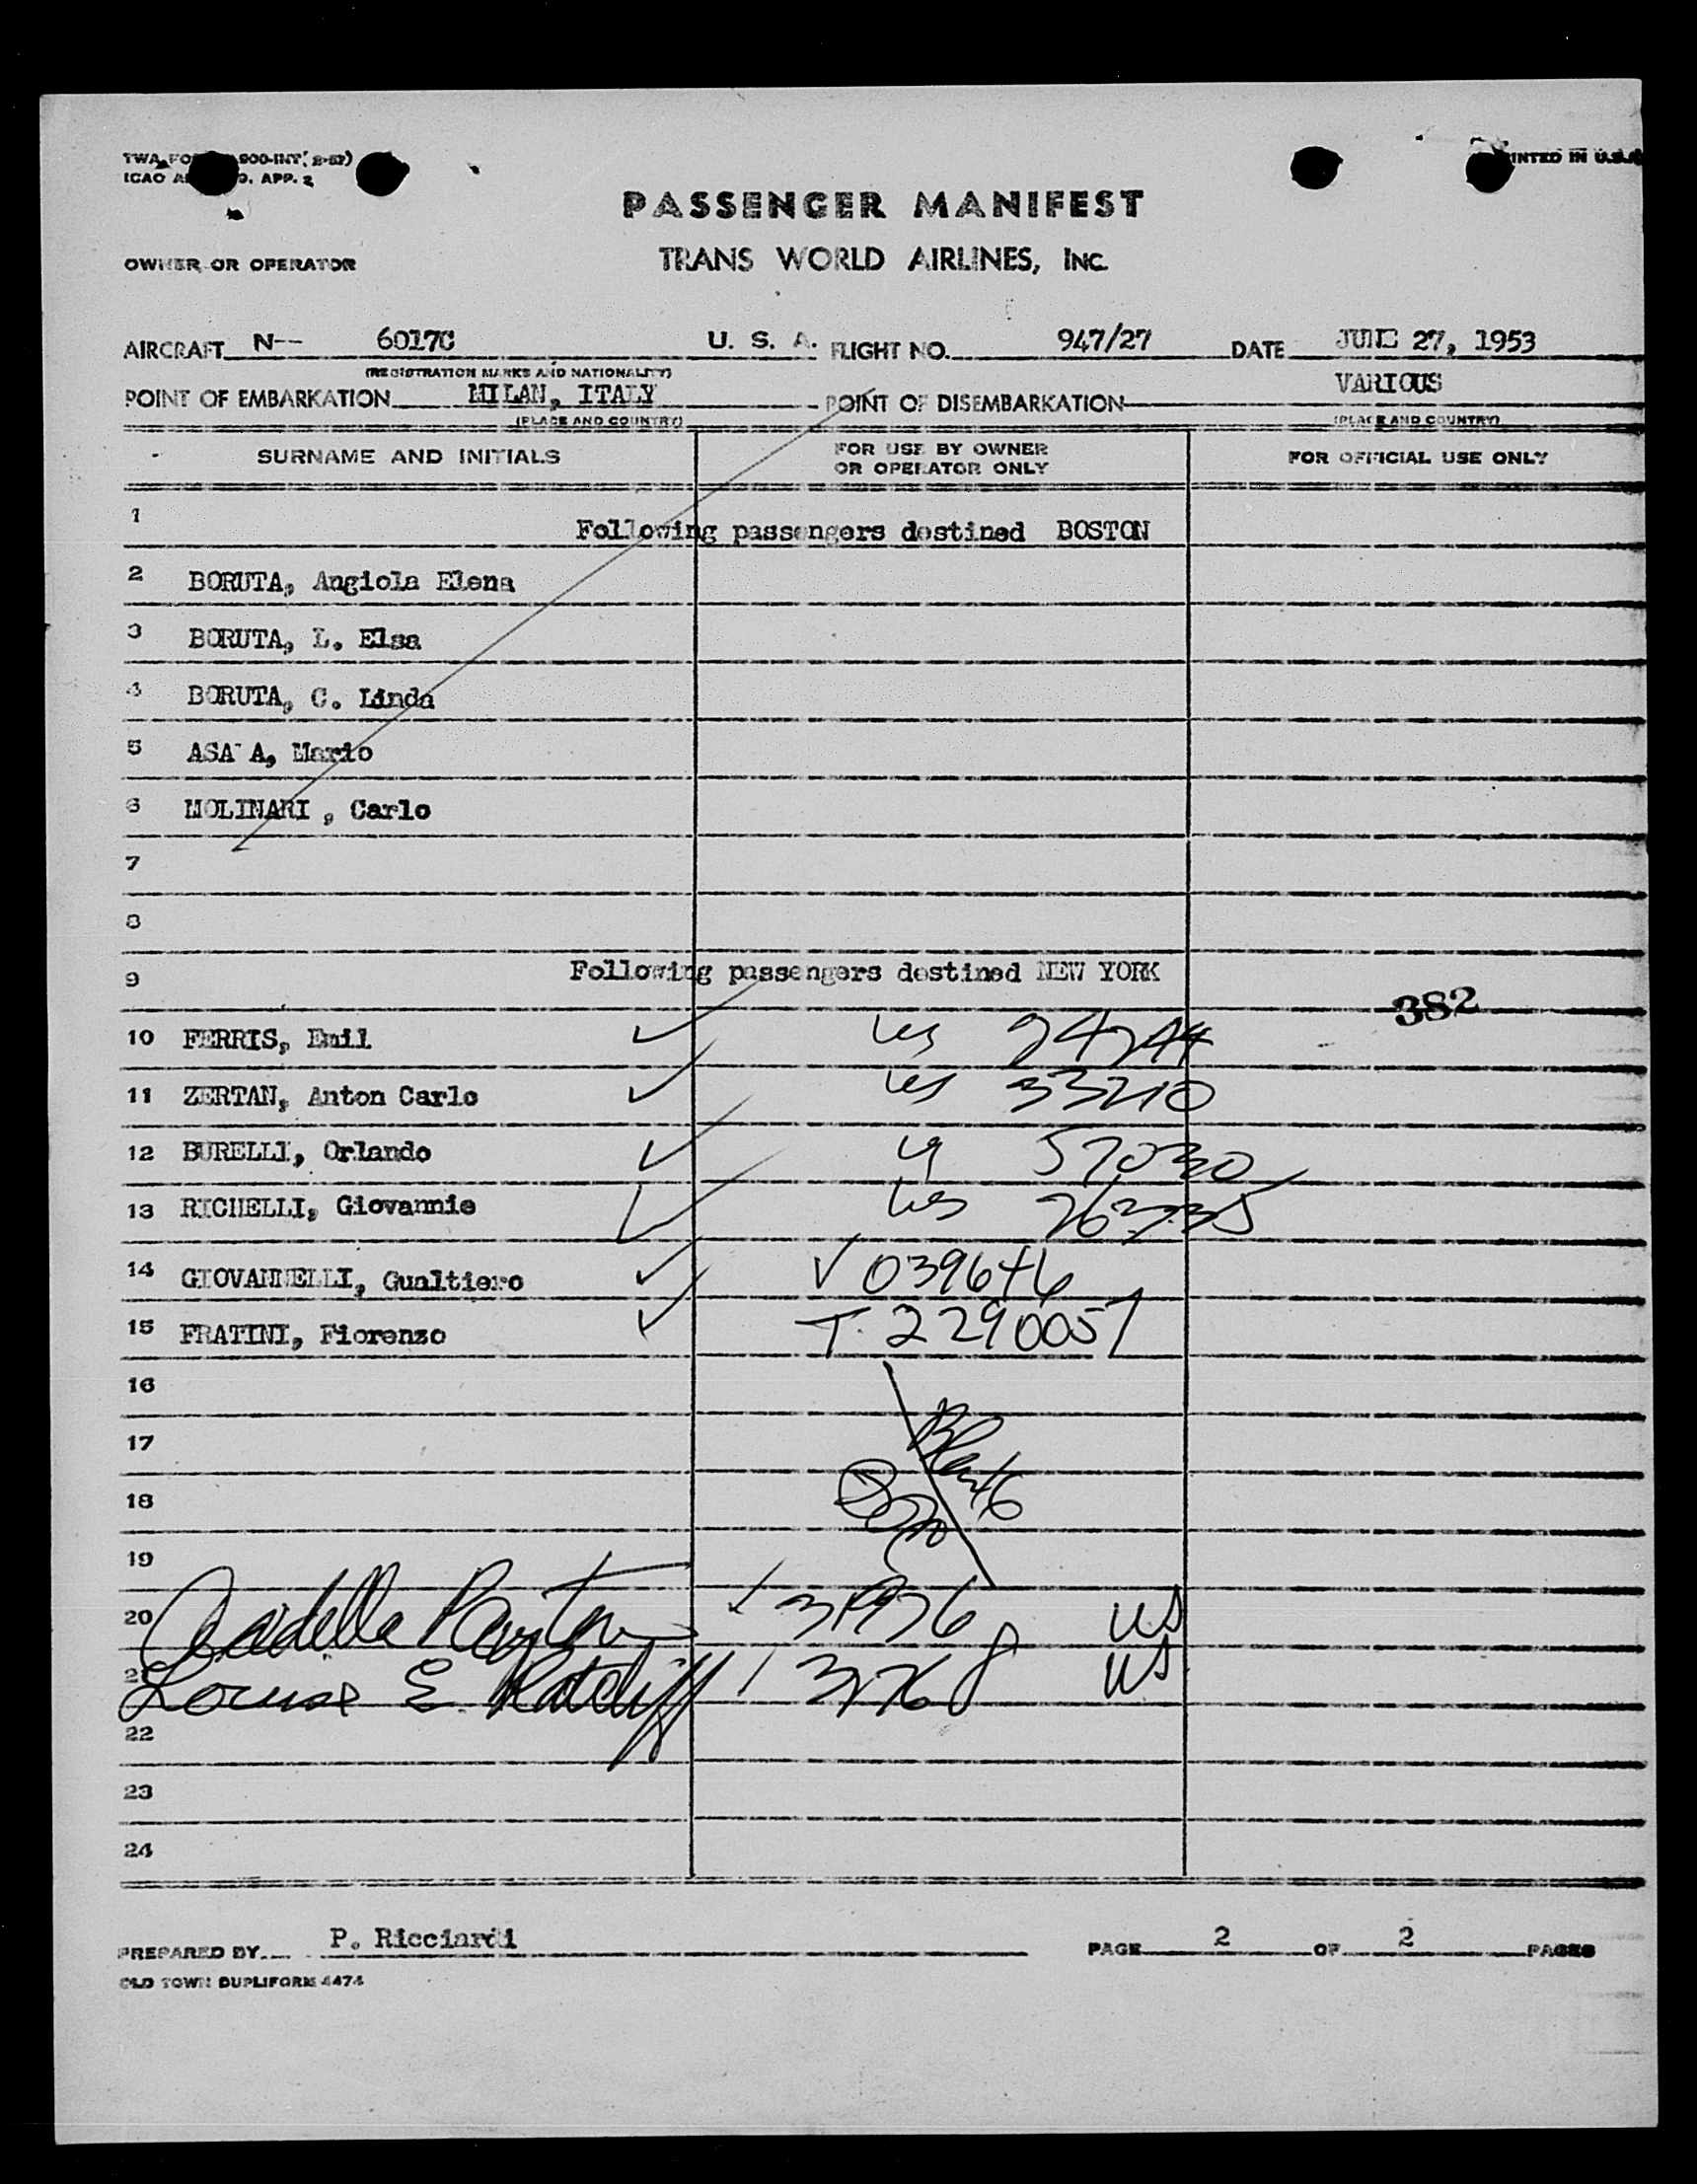 PASSENGER MANIFEST
TRANS WORLD AIRLINES, INC.
OWNER OR OPERATOR
AIRCRAFT N-- 6017C U. S. A. FLIGHT NO. 947/27 DATE JUNE 27, 1953
(REGISTRATION MARKS AND NATIONALITY)
POINT OF EMBARKATION MILAN, ITALY POINT OF DISEMBARKATION VARIOUS
(PLACE AND COUNTRY) (PLACE AND COUNTRY)
SURNAME AND INITIALS FOR USE BY OWNER OR OPERATOR ONLY FOR OFFICIAL USE ONLY
1 Following passengers destined BOSTON
2 BORUTA, Angiola Elena
3 BORUTA, L. Elsa
4 BORUTA, C. Linda
5 Mario
6 MOLINARI , Carlo
7
8
9 Following passengers destined NEW YORK
382
10 FERRIS, Emil
11 ZERTAN, Anton Carlo 33210
12 BURELLI, Orlando
13 RICHELLI, Giovannie
14 GIOVANNELLI, Gualtiero
15 FRATINI, Fiorenzo T. 2290057
16
17
18
19
20 US
21 Louise E. Ratcliff US
22
23
24
PREPARED BY P. Ricciardi PAGE 2 OF 2 PAGES
OLD TOWN DUPLIFORM 4474